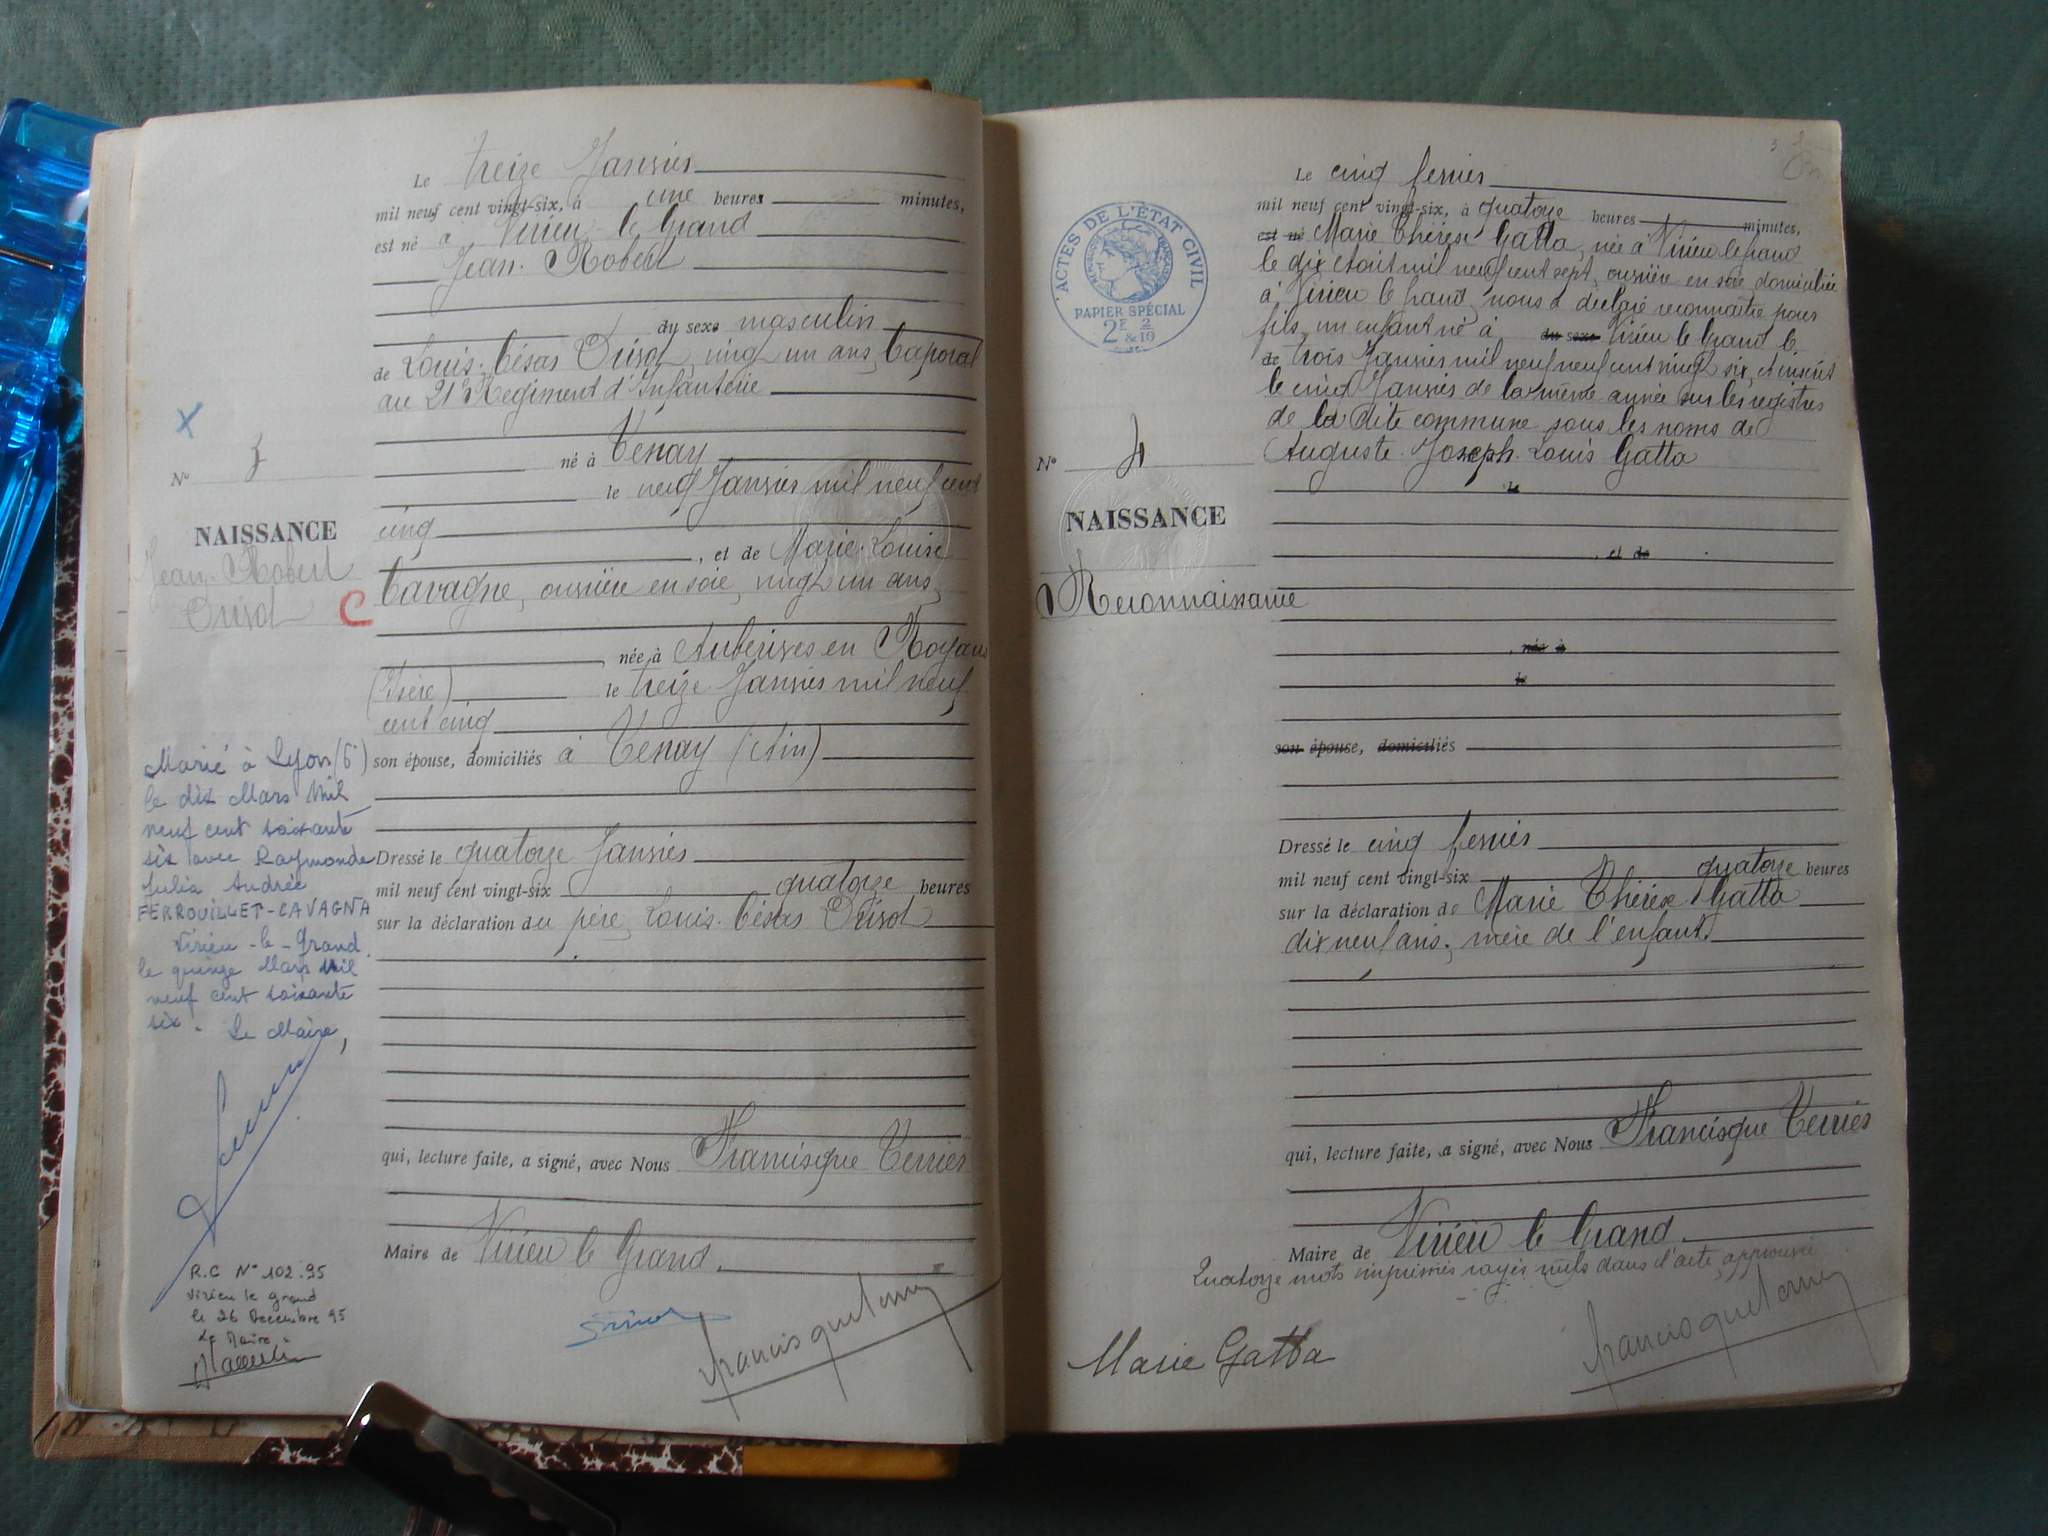 Le treize Janvier
mil neuf cent vingt-six, à une heures minutes,
est né à Virieu le Grand
Jean Robert
du sexe masculin
de Louis César Orisol, vingt un ans, Caporal
au 21e Régiment d'Infanterie
né à Tenay
le neuf Janvier mil neuf cent
cinq
, et de Marie Louise
Cavagne, ouvrière en soie, vingt un ans,
née à Auberives en Royans
(Isère) le treize Janvier mil neuf
cent cinq
son épouse, domiciliés à Tenay (Ain)
Dressé le quatorze Janvier
mil neuf cent vingt-six quatorze heures
sur la déclaration du père, Louis César Orisol
qui, lecture faite, a signé, avec Nous Francisque Terrier
Maire de Virieu le Grand.
X
N° 3
NAISSANCE
Jean Robert
Orisol C
Marié à Lyon (6°)
le dix Mars mil
neuf cent soixante
six avec Raymonde
Julia Andrée
FERROUILLET-CAVAGNA
Virieu-le-Grand.
le quinze Mars mil
neuf cent soixante
six. Le Maire,
R.C N° 102.95
Virieu le grand
le 26 Decembre 95
Le Maire
ACTES DE L'ÉTAT CIVIL
PAPIER SPÉCIAL
2F 2
& 10
N° 4
NAISSANCE
Reconnaissance
Le cinq février
mil neuf cent vingt-six, à quatorze heures minutes,
est né Marie Thérèse Gatta, née à Virieu le grand
le dix août mil neuf cent sept, ouvrière en soie domiciliée
à Virieu le grand, nous a déclaré reconnaître pour
fils, un enfant né à du sexe Virieu le Grand le
de trois Janvier mil neuf neuf cent vingt six, et inscrit
le cinq Janvier de la même année sur les registres
de la dite commune sous les noms de
Auguste Joseph Louis Gatta
le
, et de
, née à
le
son épouse, domiciliés
Dressé le cinq février
mil neuf cent vingt-six quatorze heures
sur la déclaration de Marie Thérèse Gatta
dix neuf ans, mère de l'enfant.
qui, lecture faite, a signé, avec Nous Francisque Terrier
Maire de Virieu le Grand.
Quatorze mots imprimés rayés nuls dans l'acte, approuvé
Marie Gatta